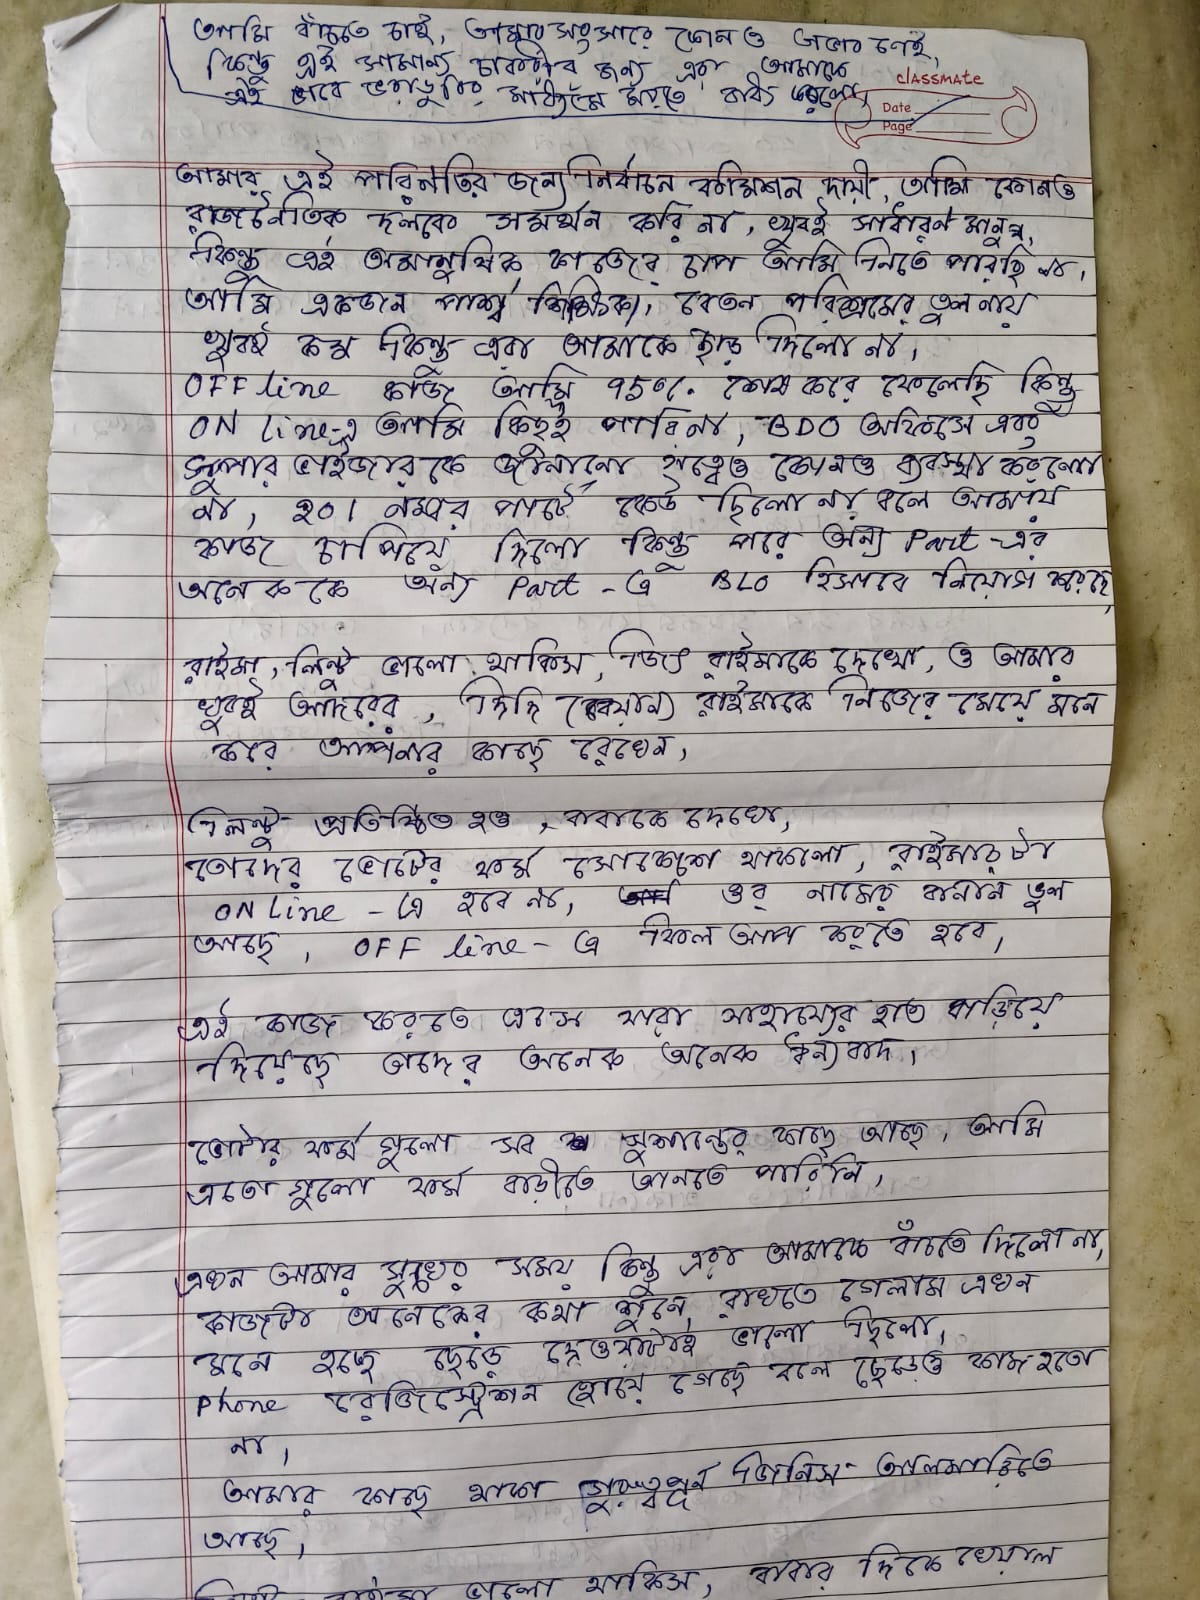 আমি বাঁচতে চাই, আমার সংসারে কোনও অভাব নেই,
কিন্তু এই সামান্য চাকরীর জন্য এরা আমাকে
এই ভাবে ভরাডুবির মাধ্যমে মরতে বাধ্য করলো,
classmate
Date
Page
আমার এই পরিনতির জন্যে নির্বাচন কমিশন দায়ী, আমি কোনও
রাজনৈতিক দলকে সমর্থন করি না, খুবই সাধারণ মানুষ,
কিন্তু এই অমানুষিক কাজের চাপ আমি নিতে পারছি না,
আমি একজন পার্শ্ব শিক্ষিকা, বেতন পরিশ্রমের তুলনায়
খুবই কম কিন্তু এরা আমাকে ছাড় দিলো না,
OFF line কাজ আমি 95%. শেষ করে ফেলেছি কিন্তু
ON line-এ আমি কিছুই পারিনা, BDO অফিসে এবং
সুপার ভাইজারকে জানানো সত্ত্বেও কোনও ব্যবস্থা করলো
না, ২০১ নম্বর পার্টে কেউ ছিলো না বলে আমায়
কাজ চাপিয়ে দিলো কিন্তু পরে অন্য Part-এর
অনেককে অন্য Part-এ BLO হিসাবে নিয়োগ করেছে,
রাইমা, লিন্টু ভালো থাকিস, রাইমাকে দেখো, ও আমার
খুবই আদরের, দিদি (বেয়ান) রাইমাকে নিজের মেয়ে মনে
করে আপনার কাছে রেখেন,
লিন্টু প্রতিষ্ঠিত হও, বাবাকে দেখো,
তোদের ভোটের ফর্ম থাকলো, রাইমারটা
ON Line-এ হবে না, ওর নামের বানান ভুল
আছে, OFF line-এ ফিল আপ করতে হবে,
এই কাজ করতে এসে যারা সাহায্যের হাত বাড়িয়ে
দিয়েছে তাদের অনেক অনেক ধন্যবাদ,
ভোটার ফর্ম গুলো সব সুশান্তের কাছে আছে, আমি
এতো গুলো ফর্ম বাড়ীতে আনতে পারিনি,
এখন আমার সুখের সময় কিন্তু এরা আমাকে বাঁচতে দিলো না,
কাজটা অনেকের কথা শুনে রাখতে গেলাম এখন
মনে হচ্ছে ছেড়ে দেওয়াটাই ভালো ছিলো,
Phone রেজিস্ট্রেশন হোয়ে গেছে বলে ছেড়েও কাজ হতো
না,
আমার কাছে থাকা গুরুত্বপূর্ন জিনিস আলমারিতে
আছে,
ভালো থাকিস, বাবার দিকে খেয়াল